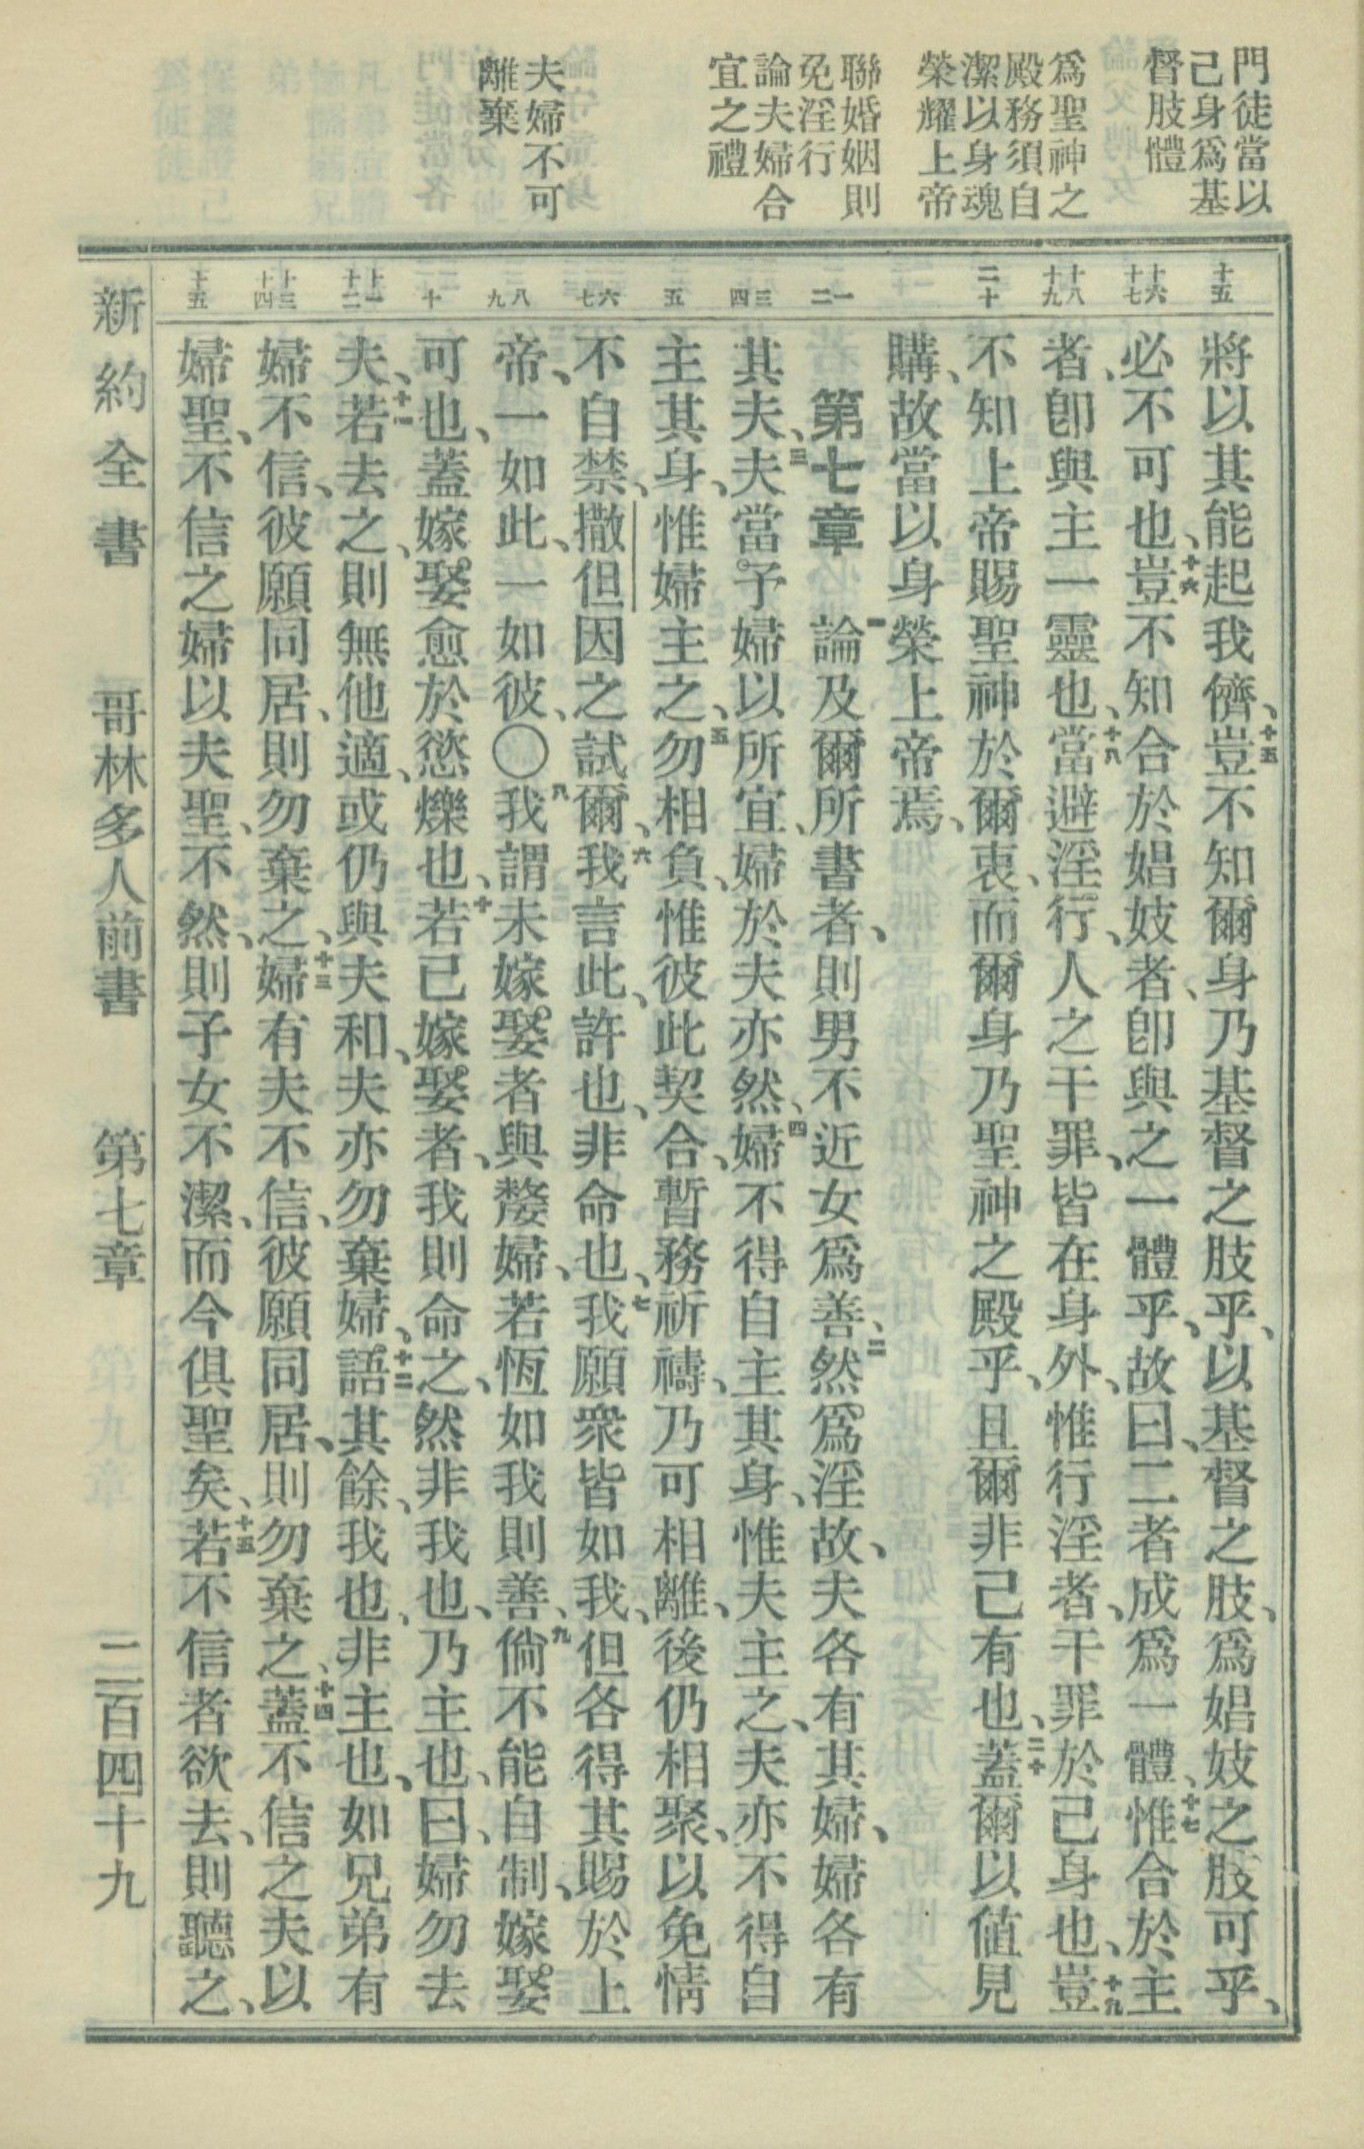 門徒當以
己身爲基
督肢體
爲聖神之
殿務須自
潔以身魂
榮耀上帝
聯婚姻則
免淫行
論夫婦合
宜之禮
夫婦不可
離棄
十五
十六 十七
十八 十九
二十
一 二
三 四
五
六 七
八 九
十
十一 十二
十三 十四
十五
將以其能起我儕、十五豈不知爾身乃基督之肢乎、以基督之肢、爲娼妓之肢可乎、
必不可也、十六豈不知合於娼妓者、卽與之一體乎、故曰、二者成爲一體、十七惟合於主
者、卽與主一靈也、十八當避淫行、人之干罪、皆在身外、惟行淫者、干罪於己身也、十九豈
不知上帝賜聖神於爾衷、而爾身乃聖神之殿乎、且爾非己有也、二十蓋爾以値見
購、故當以身榮上帝焉、
第七章 一論及爾所書者、則男不近女爲善、二然爲淫故、夫各有其婦、婦各有
其夫、三夫當予婦以所宜、婦於夫亦然、四婦不得自主其身、惟夫主之、夫亦不得自
主其身、惟婦主之、五勿相負、惟彼此契合、暫務祈禱、乃可相離、後仍相聚、以免情
不自禁、撒但因之試爾、六我言此、許也、非命也、七我願衆皆如我、但各得其賜於上
帝、一如此、一如彼、〇八我謂未嫁娶者與嫠婦、若恆如我則善、九倘不能自制、嫁娶
可也、蓋嫁娶愈於慾爍也、十若已嫁娶者、我則命之、然非我也、乃主也、曰、婦勿去
夫、十一若去之、則無他適、或仍與夫和、夫亦勿棄婦、十二語其餘、我也、非主也、如兄弟有
婦不信、彼願同居、則勿棄之、十三婦有夫不信、彼願同居、則勿棄之、十四蓋不信之夫以
婦聖、不信之婦以夫聖、不然、則子女不潔、而今俱聖矣、十五若不信者欲去、則聽之、
新約全書 哥林多人前書 第七章 二百四十九